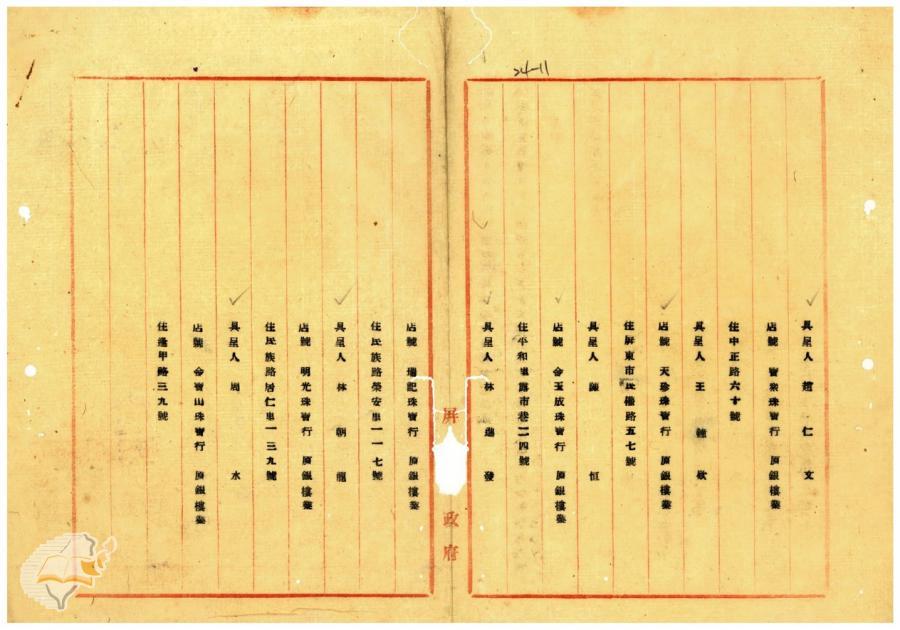 24-11
具呈人 趙仁文
店號 寶泉珠寶行 原銀樓業
住中正路六十號
具呈人 王 欽
店號 天珍珠寶行 原銀樓業
住屏東市民權路五七號
具呈人 陳恒
店號 金玉成珠寶行 原銀樓業
住平和里露市巷二四號
具呈人 林進發
屏 政府
店號 瑞記珠寶行 原銀樓業
住民族路榮安里一一七號
具呈人 林朝龍
店號 明光珠寶行 原銀樓業
住民族路居仁里一三九號
具呈人 周水
店號 金寶山珠寶行 原銀樓業
住逢甲路三九號